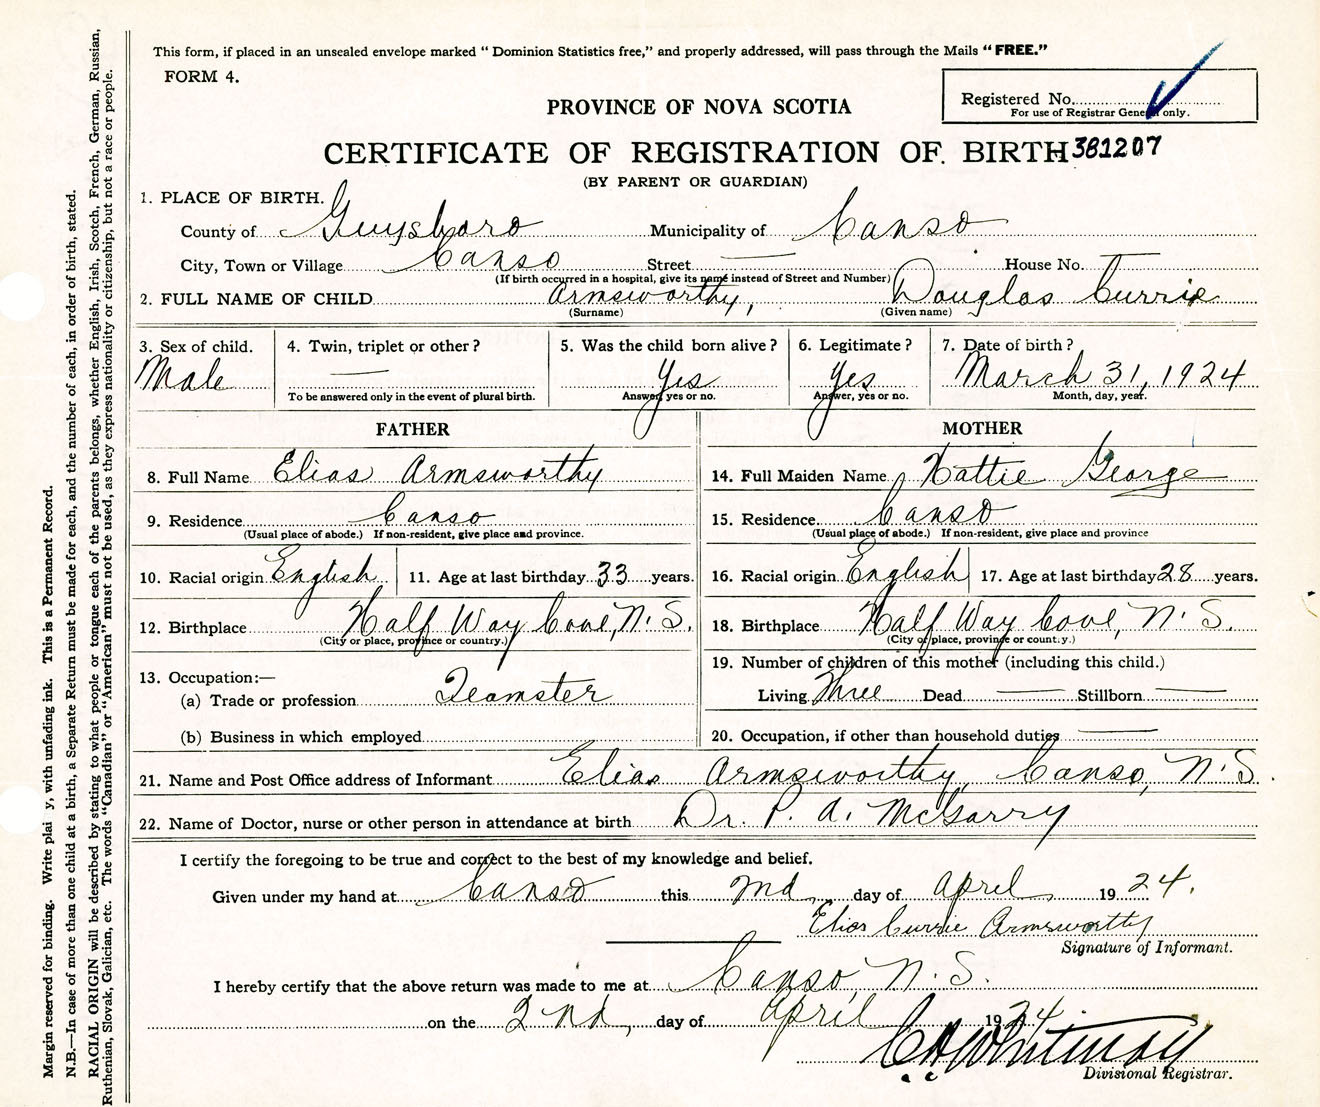 This form, if placed in an unsealed envelope marked “ Dominion Statistics free,” and properly addressed, will pass through the Mails “ FREE.”
FORM 4.
Registered No.
For use of Registrar General only.
PROVINCE OF NOVA SCOTIA
CERTIFICATE OF REGISTRATION OF BIRTH 381207
(BY PARENT OR GUARDIAN)
1. PLACE OF BIRTH.
County of Guysboro Municipality of Canso
City, Town or Village Canso Street — House No. —
(If birth occurred in a hospital, give its name instead of Street and Number)
2. FULL NAME OF CHILD Armsworthy, Douglas Currie
(Surname) (Given name)
3. Sex of child. 4. Twin, triplet or other? 5. Was the child born alive? 6. Legitimate? 7. Date of birth?
Male — Yes Yes March 31, 1924
To be answered only in the event of plural birth. Answer, yes or no. Answer, yes or no. Month, day, year.
FATHER
8. Full Name Elias Armsworthy
9. Residence Canso
(Usual place of abode.) If non-resident, give place and province.
10. Racial origin English 11. Age at last birthday 33 years.
12. Birthplace Half Way Cove, N. S.
(City or place, province or country.)
13. Occupation:—
(a) Trade or profession Teamster
(b) Business in which employed
MOTHER
14. Full Maiden Name Hattie George
15. Residence Canso
(Usual place of abode.) If non-resident, give place and province
16. Racial origin English 17. Age at last birthday 28 years.
18. Birthplace Half Way Cove, N. S.
(City or place, province or country.)
19. Number of children of this mother (including this child.)
Living Three Dead — Stillborn —
20. Occupation, if other than household duties —
21. Name and Post Office address of Informant Elias Armsworthy, Canso, N. S.
22. Name of Doctor, nurse or other person in attendance at birth Dr. P. A. McGarry
I certify the foregoing to be true and correct to the best of my knowledge and belief.
Given under my hand at Canso this 2nd day of April 1924.
Elias Currie Armsworthy
Signature of Informant.
I hereby certify that the above return was made to me at Canso, N. S.
on the 2nd, day of April 1924
Divisional Registrar.
Margin reserved for binding. Write plai y, with unfading ink. This is a Permanent Record.
N.B.—In case of more than one child at a birth, a Separate Return must be made for each, and the number of each, in order of birth, stated.
RACIAL ORIGIN will be described by stating to what people or tongue each of the parents belongs, whether English, Irish, Scotch, French, German, Russian,
Ruthenian, Slovak, Galician, etc. The words “Canadian” or “American” must not be used, as they express nationality or citizenship, but not a race or people.